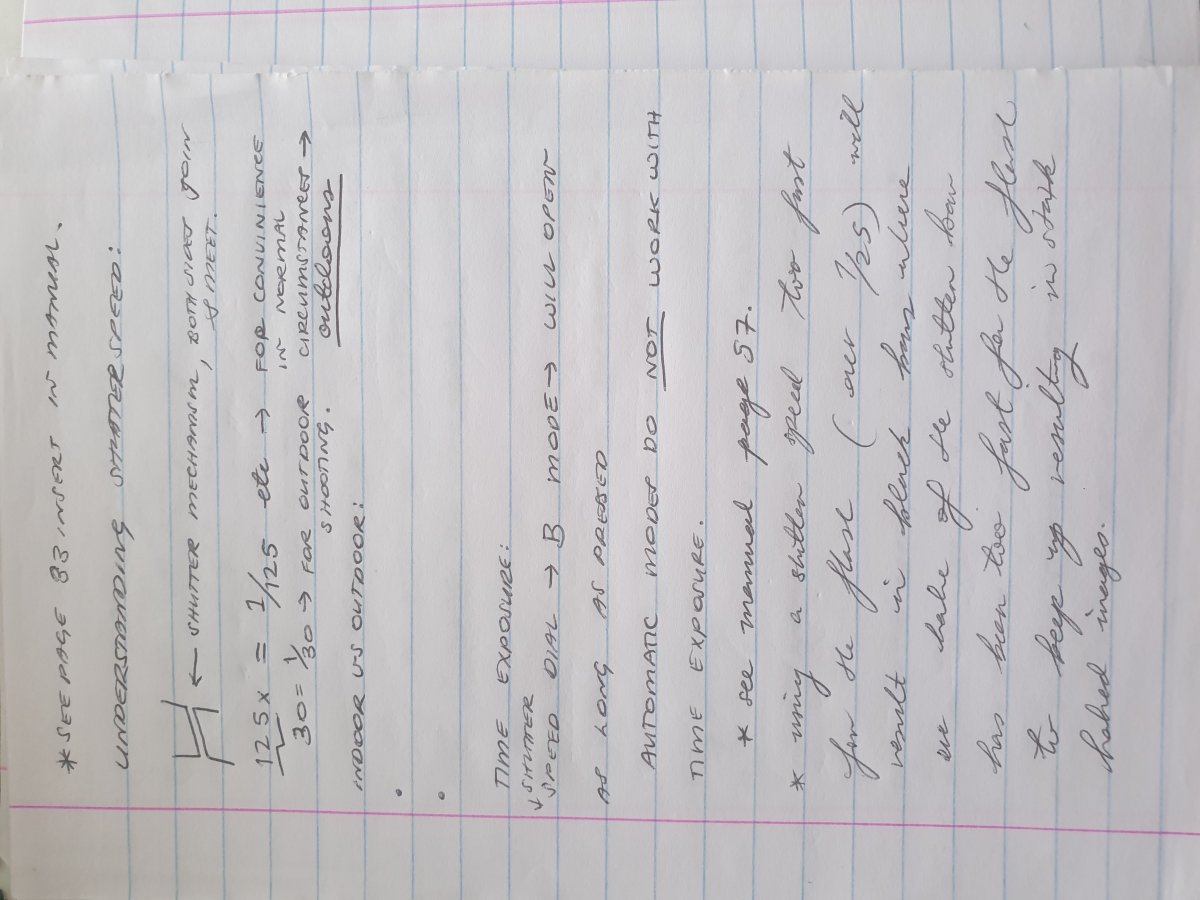 * SEE PAGE 83 INSERT IN MANUAL.
UNDERSTANDING SHUTTER SPEED:
← SHUTTER MECHANISM, BOTH SIDES JOIN
& MEET.
125x = 1/125 etc → FOR CONVINIENCE
IN NORMAL
30 = 1/30 → FOR OUTDOOR CIRCUMSTANCES →
SHOOTING. outdoors
INDOOR VS OUTDOOR:
•
•
TIME EXPOSURE:
↓ SHUTTER
SPEED DIAL → B MODE → WILL OPEN
AS LONG AS PRESSED
AUTOMATIC MODES DO NOT WORK WITH
TIME EXPOSURE.
* see manual page 57.
* using a shutter speed too fast
for the flash (over 1/25) will
result in black bars where
we half of the shutter bar
has been too fast for the flash
to keep up resulting in stark
halved images.